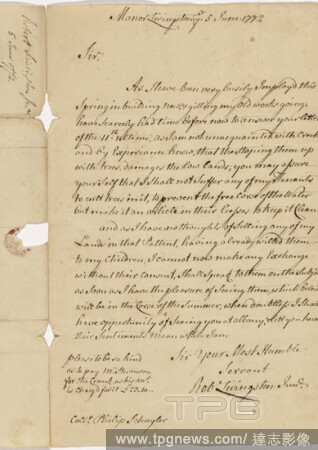 Robert Livingston Junr
5 June 1772
Manor Livingston 5 June 1772
Sir.
As I have been very busily Imployd this
Spring in building & getting my old works going
have scarcely had time before now to answer your letter
of the 11th ultimo, as I am not unacquainted with
and by Experience know, that the stoping them up
with trees, damages the low lands, you may assure
yourself that I shall not suffer any of my Tenants
to cutt trees in it, to prevent the free Corse of the Water
but make it an article in their Leases to keep it Clean
and as I have no thoughts of selling any of my
Land in that Pattent, having already willed them
to my Children, I cannot now make any Exchange
without their Consent, I shall speak to them on the Subject
as soon as I have the pleasure of seeing them, which I believe
will be in the Corse of the Summer, when doubtless I shall
have opportunity of Seeing you at albany, & let you know
their Sentiments mean while I am
Sir Your Most Humble
Servant
Robt Livingston Junr
please to be so kind
as to pay
for the
is charg'd
Coll. Philip Schuyler
TPG
www.tpgnews.com / 達志影像